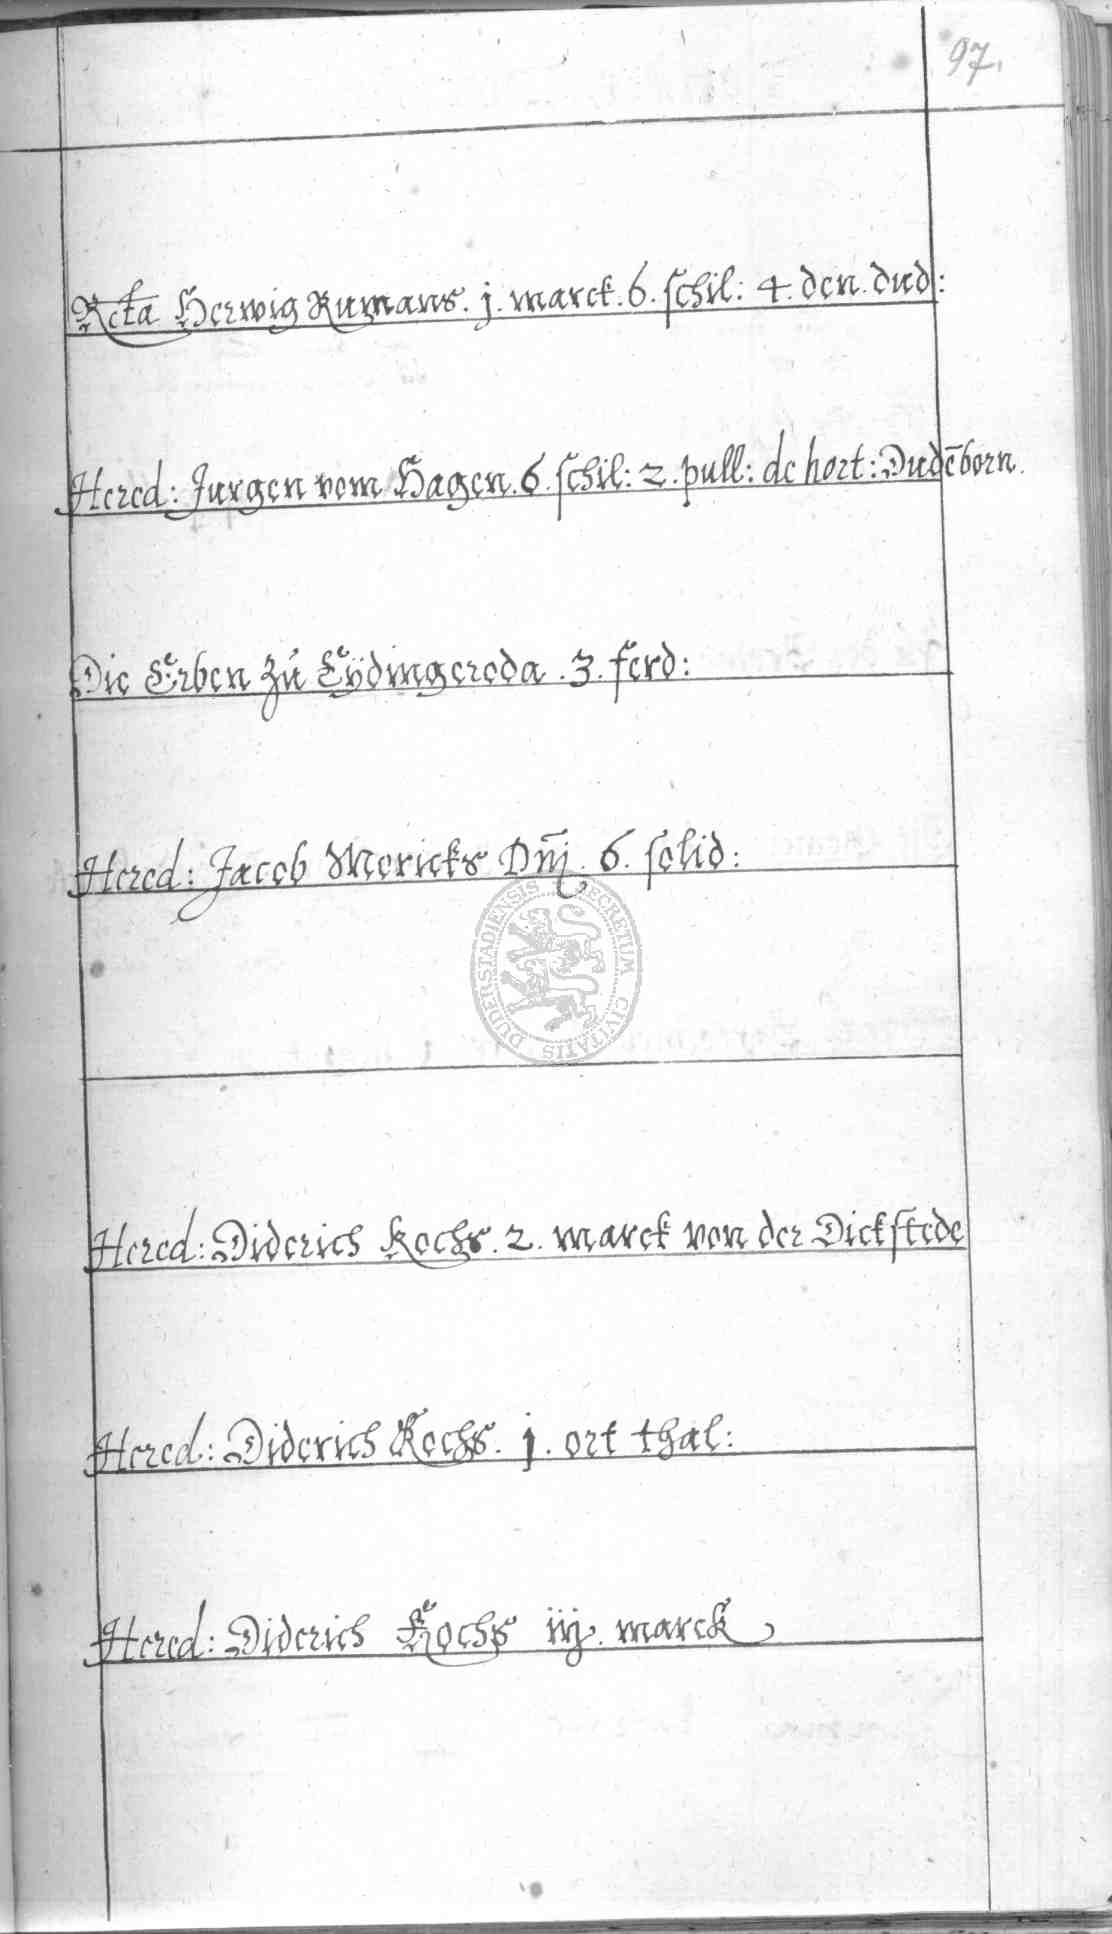 97.
Rcta Herwig Rumans. j. marck. 6. schil: 4. den. dud:
Hered: Jurgen vom Hagen. 6. schil: 2. pull: de hort: Dudēborn.
Die Erben zu Eÿdingeroda. 3. ferd:
Hered: Jacob Mericks Dn̄j. 6. solid:
SECRETUM CIVITATIS DUDERSTADIENSIS
Hered: Diderich Kochs. 2. marck von der Dickstede
Hered: Diderich Kochs. j. ort thal:
Hered: Diderich Kochs iij. marck